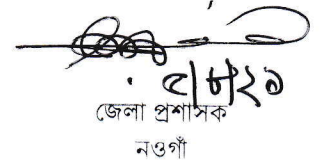 ৫/৮/২১
জেলা প্রশাসক
নওগাঁ